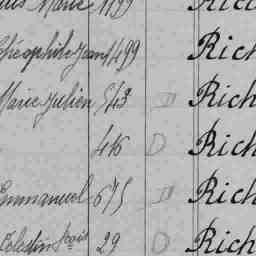 Marie 1199 Rich
Théophile Jean 1499 Rich
Marie Julien 543 D Rich
416 D Rich
Emmanuel 675 D Rich
Celestin 29 D Rich